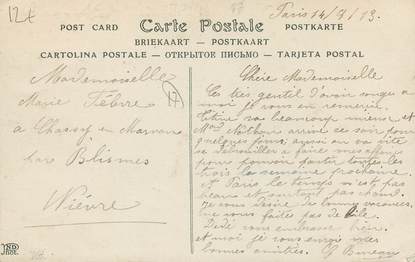 12t
Paris 14/8/13.
POST CARD Carte Postale POSTKARTE
BRIEKAART — POSTKAART
CARTOLINA POSTALE — ОТКРЫТОЕ ПИСЬМО — TARJETA POSTAL
Mademoiselle
Marie Fèbvre
à Chassy en Morvan
par Blismes
Nièvre
17
ND
Phot.
Chère Mademoiselle
C'est très gentil d'avoir songé a
moi je vous en remercie.
va beaucoup mieux et
Mme arrive ce soir pour
quelques jours aussi on va vite
se débrouiller a faire nos affaires
pour pouvoir partir toutes les
trois la semaine prochaine.
A Paris le temps n'est pas
beau et surtout pas chaud.
Je vous désire de bonnes vacances.
Ne vous faites pas de bile.
Dédé vous embrasse bien
et moi je vous envoie mes
bonnes amitiés. G